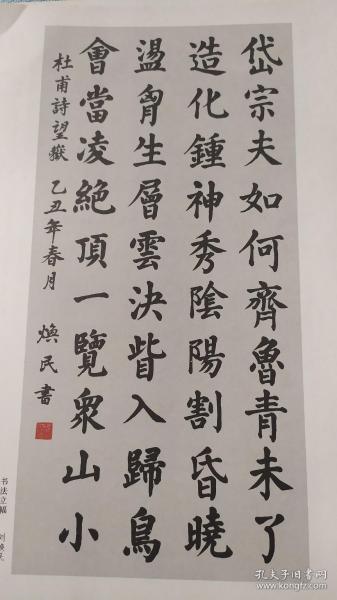 岱宗夫如何齊魯青未了
造化鍾神秀陰陽割昏曉
盪胷生層雲決眥入歸鳥
會當凌絶頂一覽衆山小
杜甫詩望嶽 乙丑年春月 煥民書
书法立幅
孔夫子旧书网
www.kongfz.com